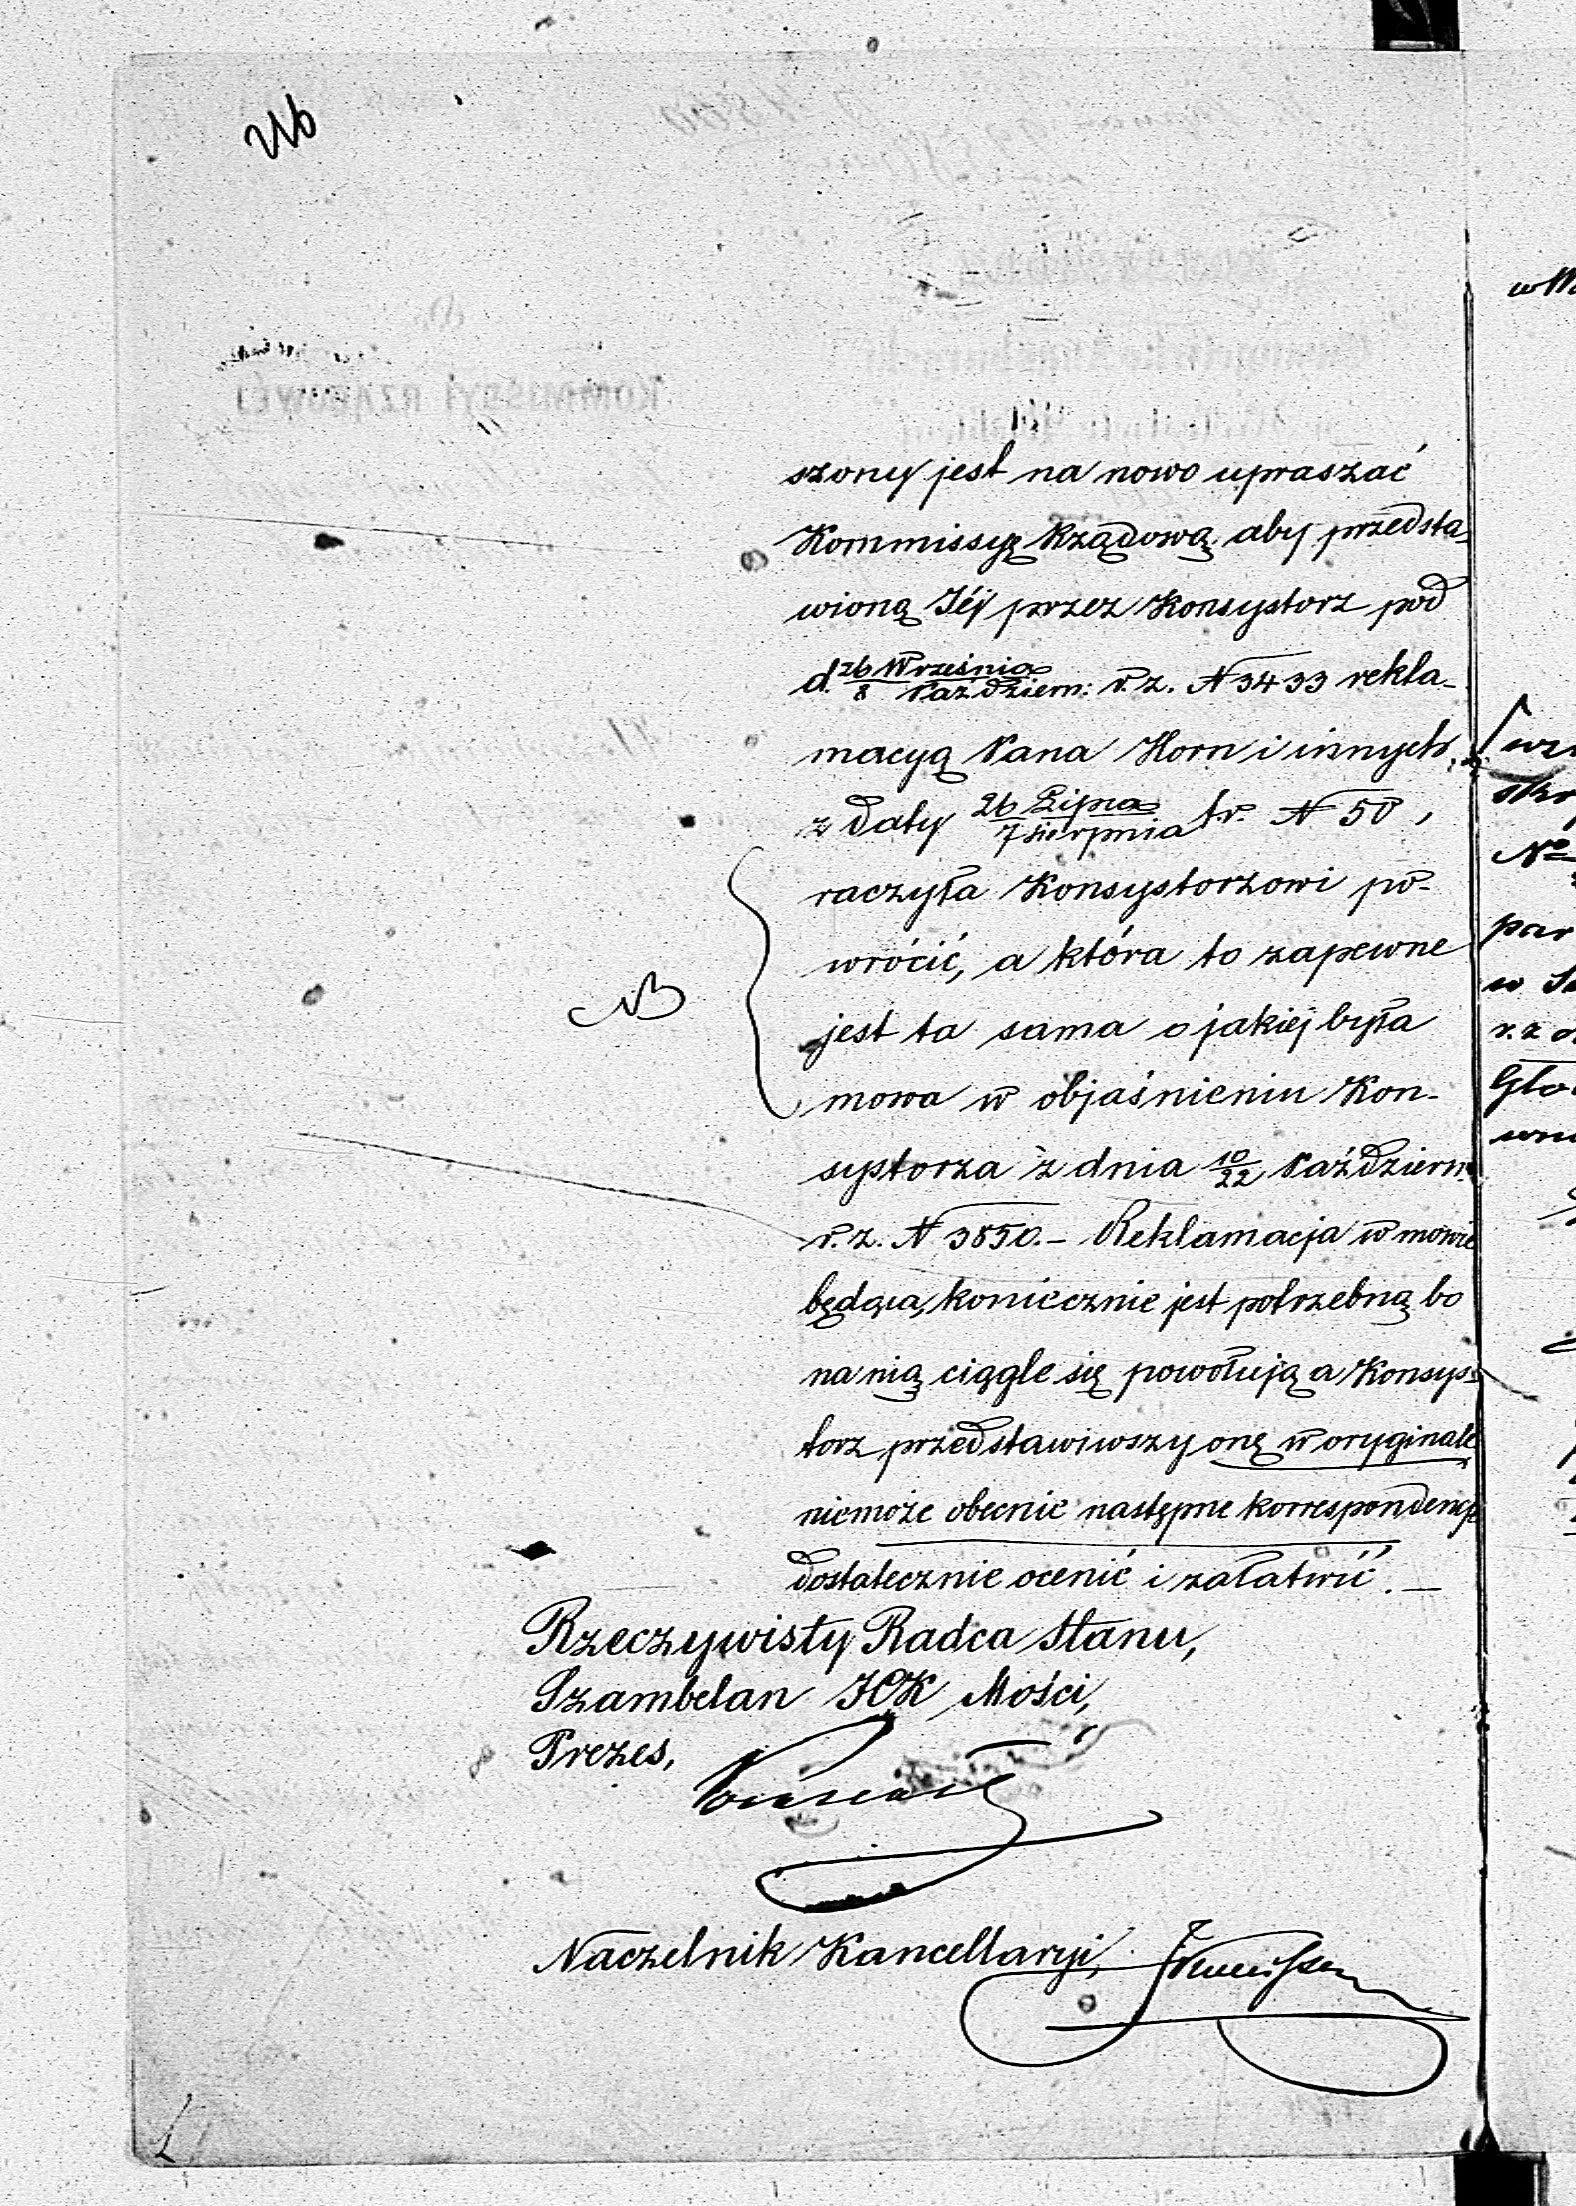 szony jest na nowo upraszać
Kommissyę Rządową aby przedsta-
wioną Jéj przez Konsystorz pod
d. 26 Września / 8 Paździem: r. z. N 3433 rekla-
macyą Pana Horn i innych
z daty 26 Lipca / 7 Sierpnia t. r. N 50,
raczyła Konsystorzowi po-
wrócić, a która to zapewne
NB
jest ta sama o jakiej była
mowa w objaśnieniu Kon-
systorza z dnia 10/22 Październ.
r. z. N 3850. – Reklamacja w mowie
będąca, koniecznie jest potrzebną bo
na nią ciągle się powołują a Konsys-
torz przedstawiwszy onę w oryginale
niemoże obecnie następne korrespondencje
dostatecznie ocenić i załatwić. –
Rzeczywisty Radca Stanu,
Szambelan JCK Mości,
Prezes,
Naczelnik Kancellaryi,